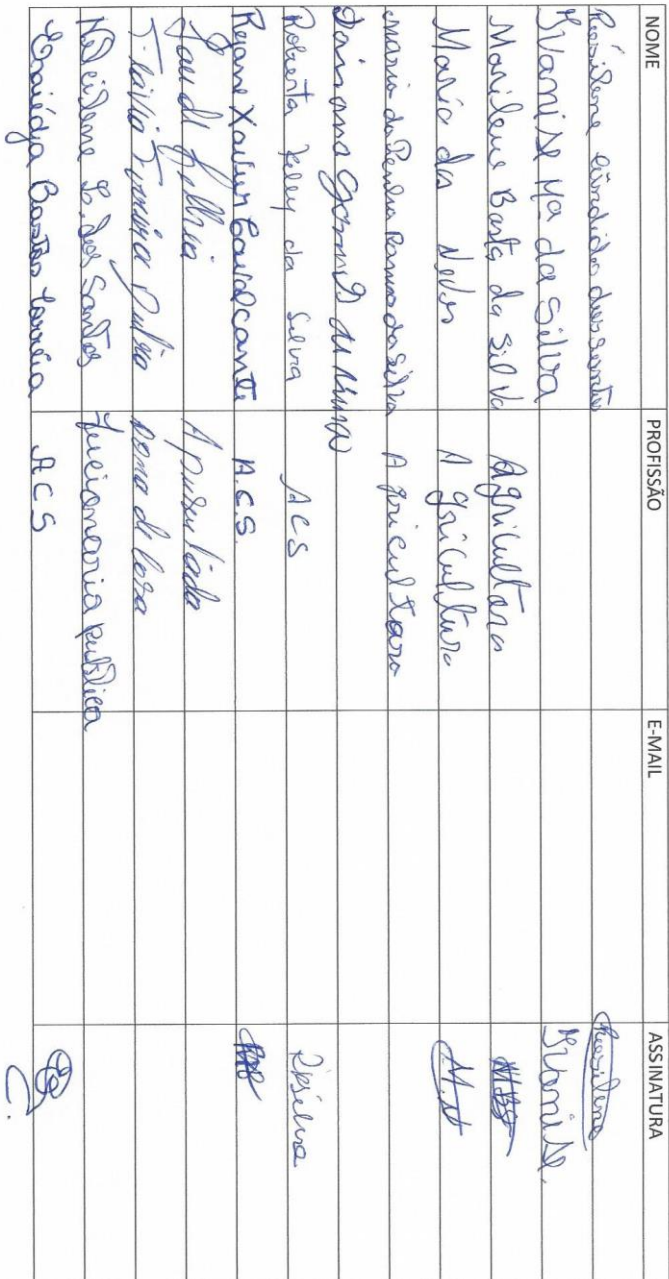 NOME PROFISSÃO E-MAIL ASSINATURA
Rosilene Cândido dos Santos Rosilene
Ivanise Mª da Silva Ivanise.
Marilene Barta da Silva Agricultora MBS
Maria das Neves Agricultura M.N
Maria da Penha Ramos da Silva Agricultara
Gomes de Lima
Roberta Kelley da Silva ACS RKSilva
Rejane Xavier Cavalcante A.C.S.
Apusentada
Dona de Casa
Necidene L. dos Santos Fucionaria publica
Bastos Correia ACS